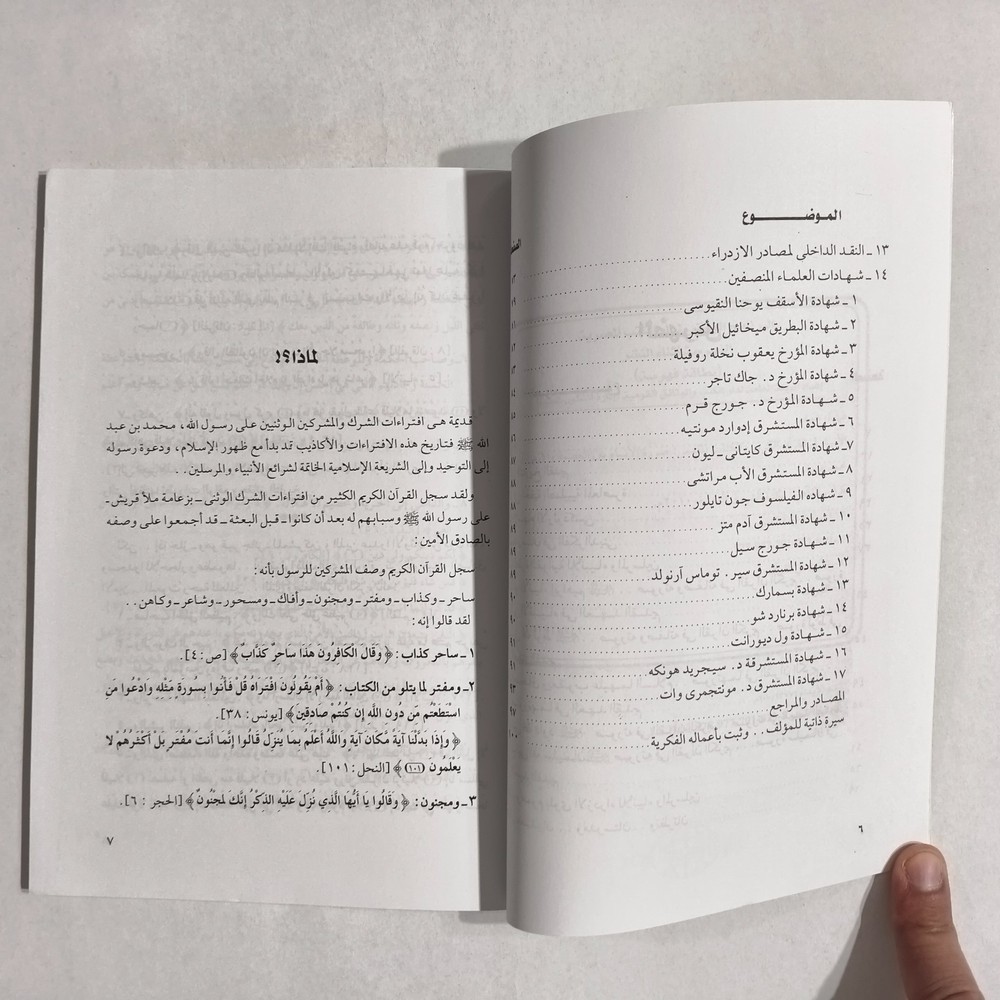 الموضـــــــوع
١٣ ـ النقد الداخلى لمصادر الازدراء
١٤ ـ شهادات العلماء المنصفين
١ ـ شهادة الأسقف يوحنا النقيوسى
٢ ـ شهادة البطريق ميخائيل الأكبر
٣ ـ شهادة المؤرخ يعقوب نخلة روفيلة
٤ ـ شهادة المؤرخ د. جاك تاجر
٥ ـ شهادة المؤرخ د. جورج قرم
٦ ـ شهادة المستشرق إدوارد مونتيه
٧ـ شهادة المستشرق كايتانى ـ ليون
٨ ـ شهادة المستشرق الأب مراتشى
٩ ـ شهاده الفيلسوف جون تايلور
١٠ ـ شهادة المستشرق آدم متز
١١ ـ شهادة جورج سيل
١٢ ـ شهادة المستشرق سير. توماس آرنولد
١٣ ـ شهادة بسمارك
١٤ ـ شهادة برنارد شو
١٥ ـ شهادة ول ديورانت
١٦ ـ شهادة المستشرقة د. سيجريد هونكه
١٧ ـ شهادة المستشرق د. مونتجمرى وات
المصادر والمراجع
سيرة ذاتية للمؤلف.. وثبت بأعماله الفكرية
٦
لماذا؟!
قديمة هى افتراءات الشرك والمشركين الوثنيين على رسول الله، محمد بن عبد
الله ﷺ فتاريخ هذه الافتراءات والأكاذيب قد بدأ مع ظهور الإسلام، ودعوة رسوله
إلى التوحيد وإلى الشريعة الإسلامية الخاتمة لشرائع الأنبياء والمرسلين. .
ولقد سجل القرآن الكريم الكثير من افتراءات الشرك الوثنى ـ بزعامة ملأ قريش ـ
على رسول الله ﷺ وسبابهم له بعد أن كانوا ـ قبل البعثة ـ قد أجمعوا على وصفه
بالصادق الأمين:
سجل القرآن الكريم وصف المشركين للرسول بأنه:
ساحر ـ وكذاب ـ ومفتر ـ ومجنون ـ وأفاك ـ ومسحور ـ وشاعر ـ وكاهن. .
لقد قالوا إنه:
١ ـ ساحر كذاب: ﴿ وَقَالَ الْكَافِرُونَ هَذَا سَاحِرٌ كَذَّابٌ ﴾ [ص: ٤].
٢ـ ومفتر لما يتلو من الكتاب: ﴿ أَمْ يَقُولُونَ افْتَرَاهُ قُلْ فَأْتُوا بِسُورَةٍ مِّثْلِهِ وَادْعُوا مَنِ
اسْتَطَعْتُم مِّن دُونِ اللَّهِ إِن كُنتُمْ صَادِقِينَ ﴾ [يونس: ٣٨].
﴿ وَإِذَا بَدَّلْنَا آيَةً مَّكَانَ آيَةٍ وَاللَّهُ أَعْلَمُ بِمَا يُنَزِّلُ قَالُوا إِنَّمَا أَنتَ مُفْتَرٍ بَلْ أَكْثَرُهُمْ لا
يَعْلَمُونَ (١٠١) ﴾ [النحل: ١٠١].
٣ ـ ومجنون: ﴿ وَقَالُوا يَا أَيُّهَا الَّذِي نُزِّلَ عَلَيْهِ الذِّكْرُ إِنَّكَ لَمَجْنُونٌ ﴾ [الحجر: ٦].
٧